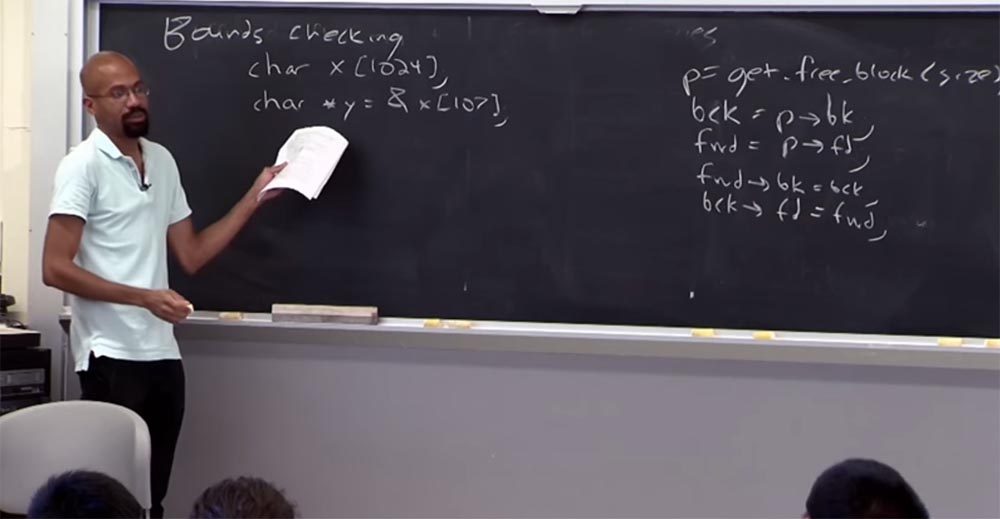 Bounds checking
char x[1024];
char *y = &x[107];
p = get_free_block(size)
bck = p→bk;
fwd = p→fd;
fwd→bk = bck
bck→fd = fwd;